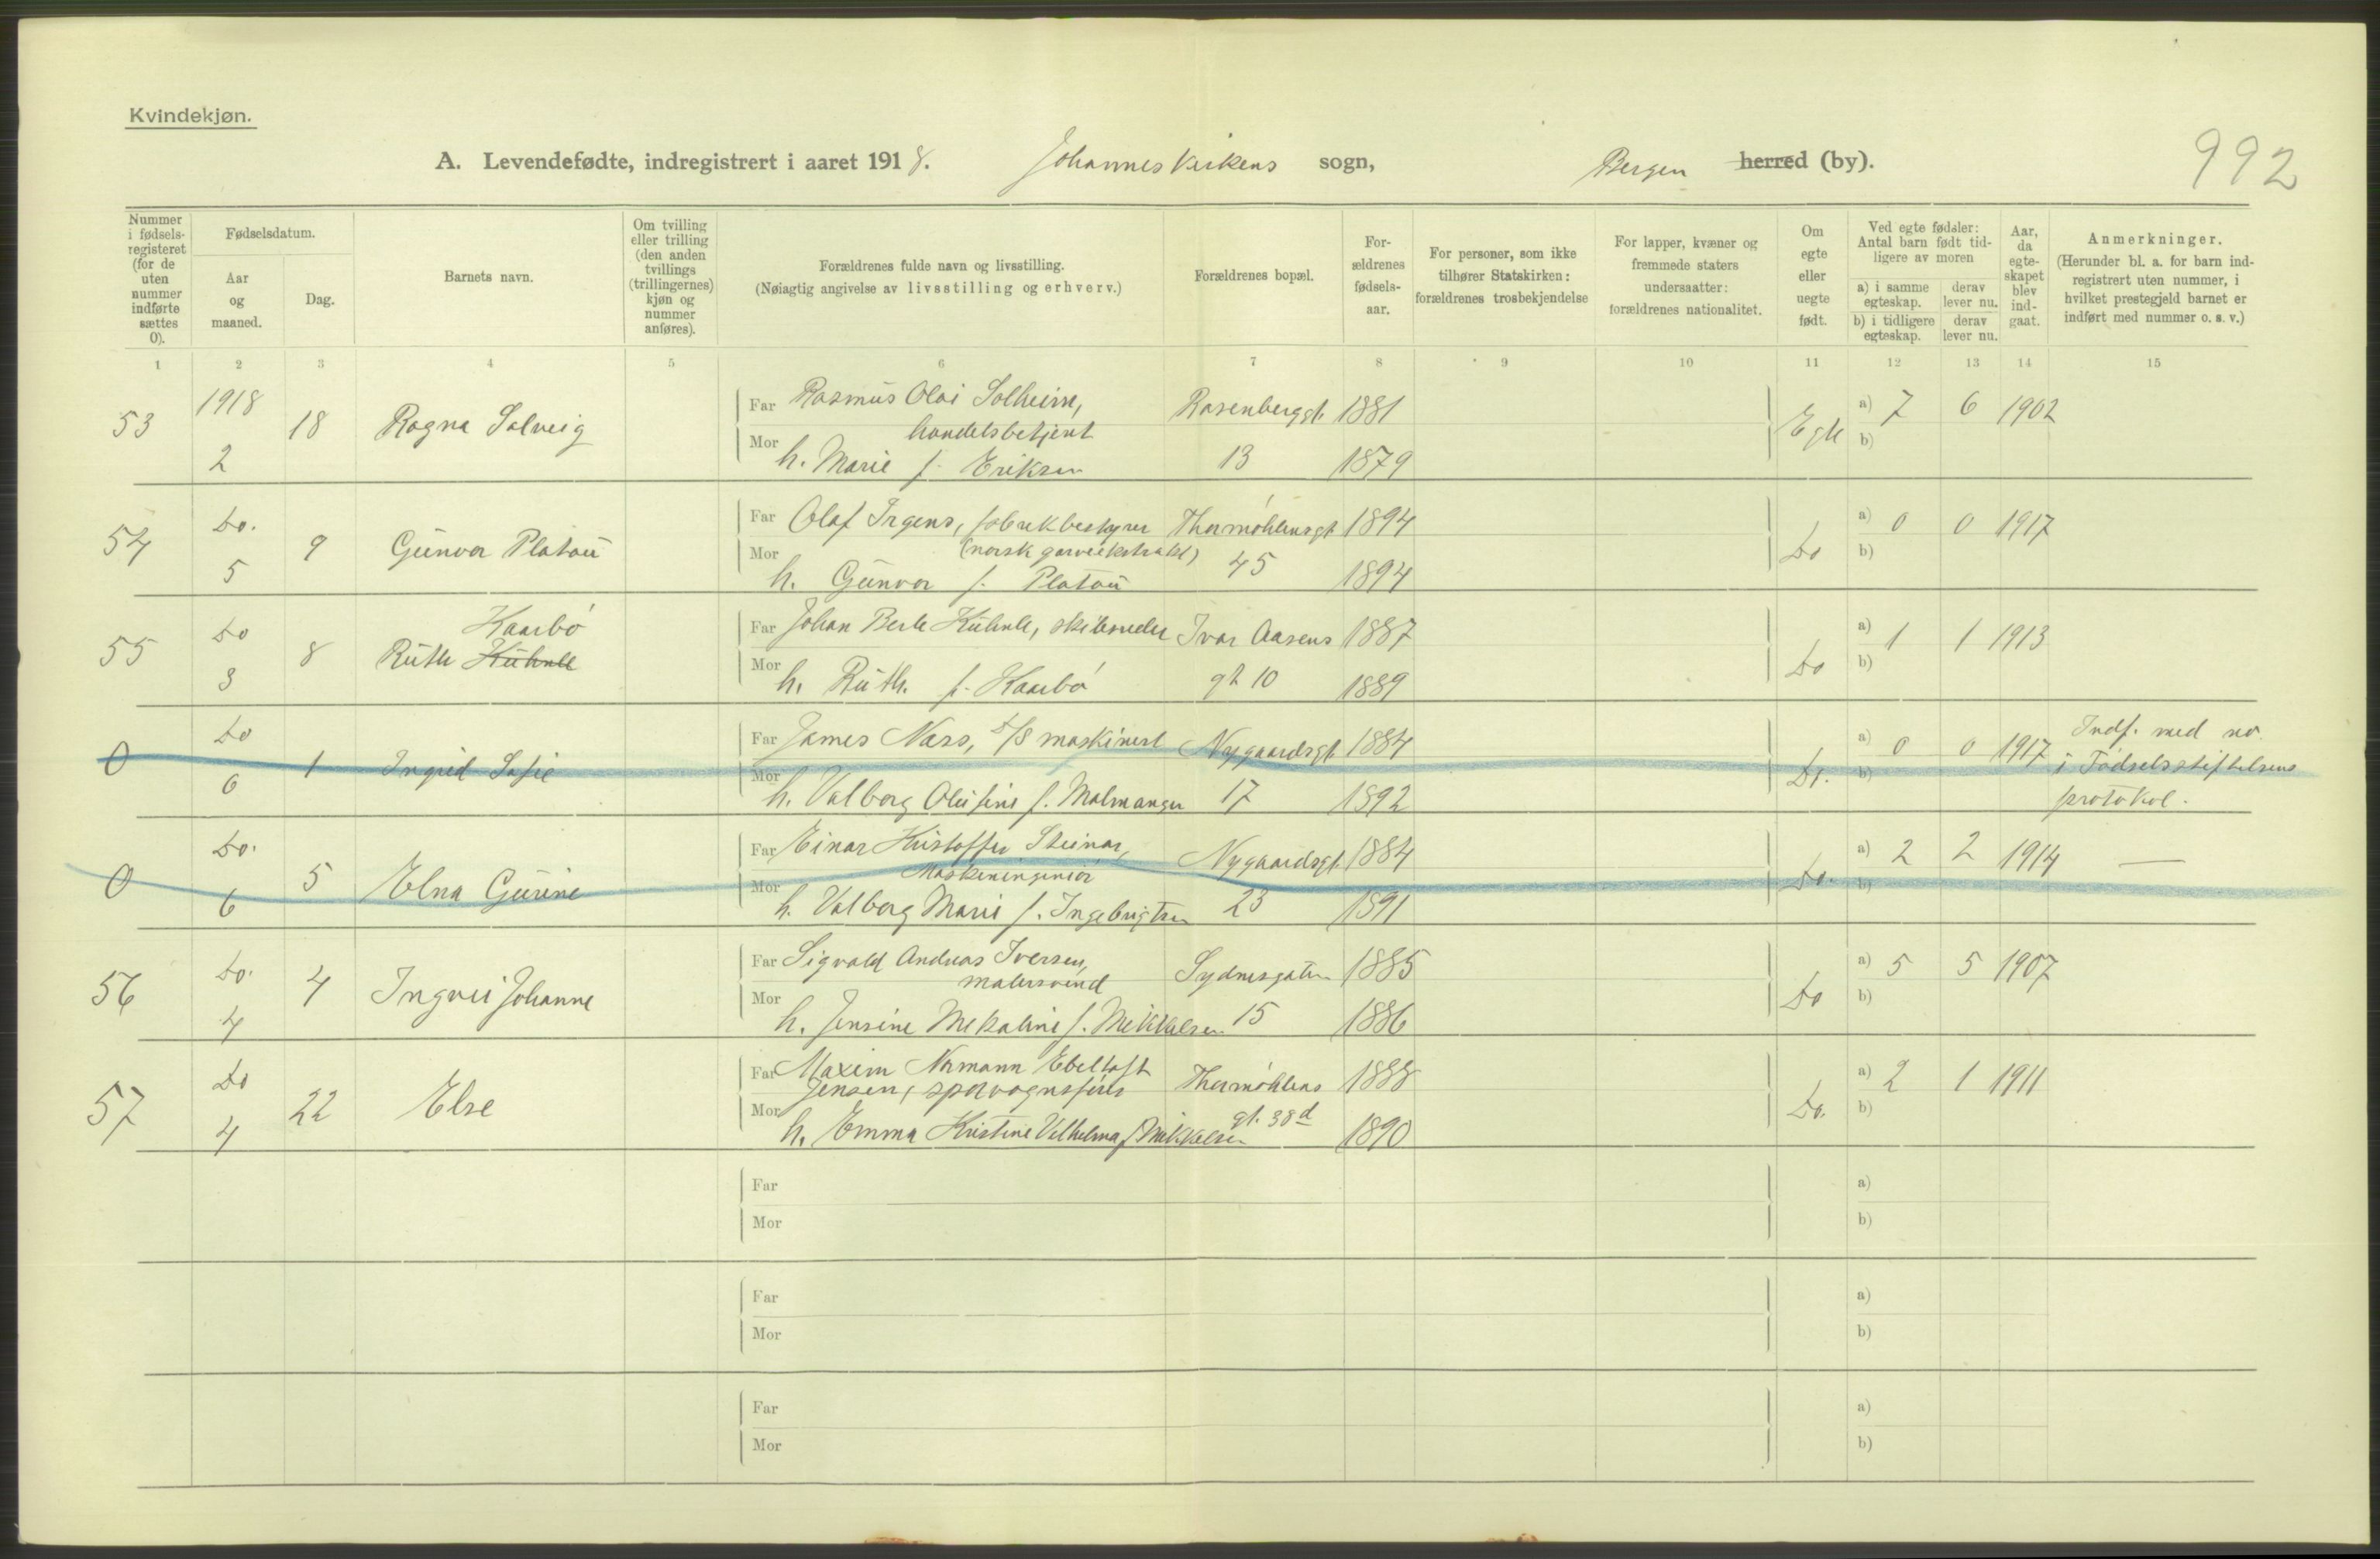 Kvindekjøn.
A. Levendefødte, indregistrert i aaret 1918. Johanneskirkens sogn, Bergen herred (by).
992
Nummer i fødsels-registeret (for de uten nummer indførte sættes 0).
Fødselsdatum.
Aar og maaned.
Dag.
Barnets navn.
Om tvilling eller trilling (den anden tvillings (trillingernes) kjøn og nummer anføres).
Forældrenes fulde navn og livsstilling.
(Nøiagtig angivelse av livsstilling og erhverv.)
Forældrenes bopæl.
For-ældrenes fødsels-aar.
For personer, som ikke tilhører Statskirken: forældrenes trosbekjendelse
For lapper, kvæner og fremmede staters undersaatter: forældrenes nationalitet.
Om egte eller uegte født.
Ved egte fødsler: Antal barn født tid-ligere av moren
a) i samme egteskap.
derav lever nu.
b) i tidligere egteskap.
derav lever nu.
Aar, da egte-skapet blev ind-gaat.
Anmerkninger.
(Herunder bl. a. for barn ind-registrert uten nummer, i hvilket prestegjeld barnet er indført med nummer o. s. v.)
1 2 3 4 5 6 7 8 9 10 11 12 13 14 15
53 1918 2 18 Ragna Solveig
Far Rasmus Olai Solheim, handelsbetjent Rosenberggt. 1881
Mor h. Marie f. Eriksen 13 1879
Egte a) 7 6 1902
b)
54 Do. 5 9 Gunvor Platou
Far Olaf Irgens, fabrikbestyrer Thormøhlensgt. 1894
(norsk garveekstrakt)
Mor h. Gunvor f. Platou 45 1894
Do a) 0 0 1917
b)
55 Do 3 8 Ruth Kühnle Kaarbø
Far Johan Berle Kühnle, skibsreder Ivar Aasens 1887
Mor h. Ruth. f. Kaarbø gt 10 1889
Do a) 1 1 1913
b)
0 Do 6 1 Ingrid Sofie
Far James Næss, D/S maskinist Nygaardsgt. 1884
Mor h. Valborg f. Malmanger 17 1892
Do. a) 0 0 1917 Indf. med no.
b) i Fødselsstiftelsens
protokol.
0 Do. 6 5 Elna Gurine
Far Einar Kristoffer Steinar, Maskiningeniør Nygaardsgt. 1884
Mor h. Valborg Marie f. Ingebrigtsen 23 1891
Do. a) 2 2 1914 —
b)
56 Do. 4 4 Johanne
Far Sigvald Andreas Iversen, malersvend Sydnesgaten 1885
Mor h. Jensine f. Mikkelsen 15 1886
Do a) 5 5 1907
b)
57 Do 4 22 Else
Far Maxim Normann Ebeltoft Jensen, sporvognsfører Thormøhlens 1888
Mor h. Emma Kristine Vilhelma f. Mikkelsen gt. 38d 1890
Do. a) 2 1 1911
b)
Far a)
Mor b)
Far a)
Mor b)
Far a)
Mor b)